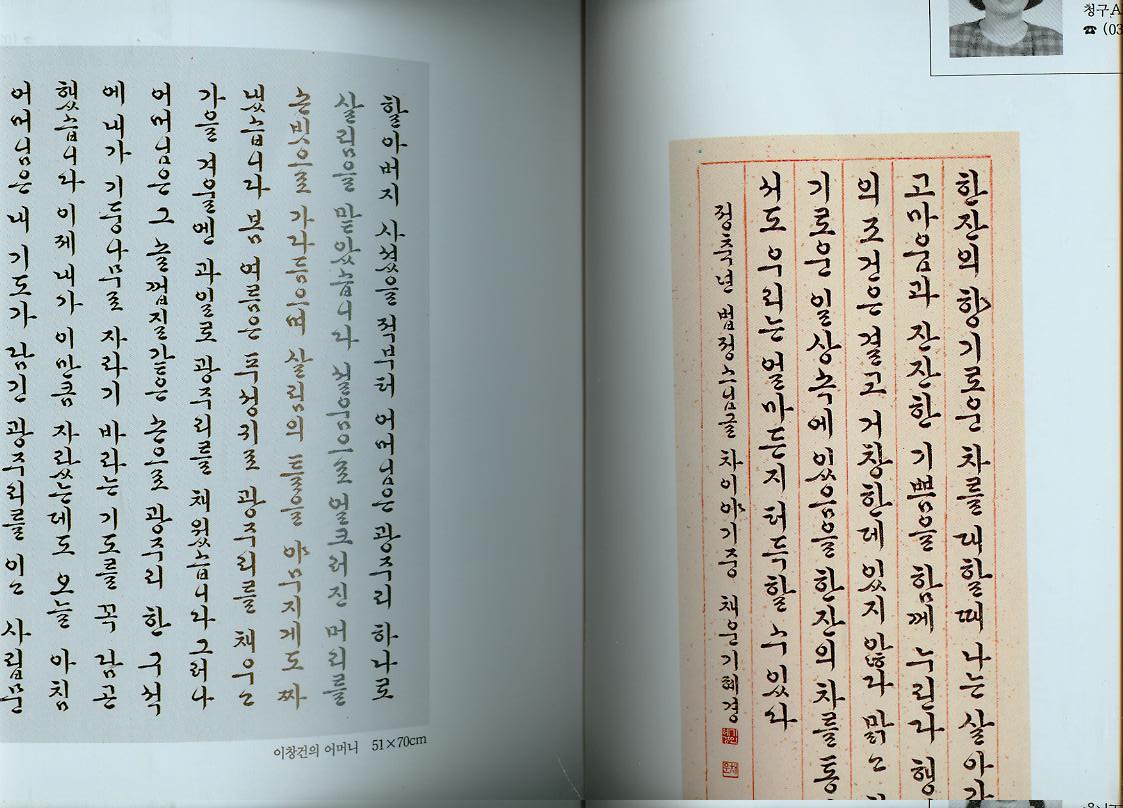 할아버지 사셨을 적부터 어머님은 광주리 하나로
살림을 맡았습니다 설움으로 얼크러진 머리를
손빗으로 가다듬으며 살림의 틀을 야무지게도 짜
냈습니다 봄 여름은 푸성귀로 광주리를 채우고
가을 겨울엔 과일로 광주리를 채웠습니다 그러나
어머님은 그 손으로 광주리 한 구석
에 내가 기둥나무로 자라기 바라는 기도를 꼭 담곤
했습니다 이제 내가 이만큼 자랐는데도 오늘 아침
어머님은 내 기도가 담긴 광주리를 이고 사립문
이창건의 어머니 51×70cm
청구A
☎ (03
한잔의 향기로운 차를 대할 때 나는 살아가
고마움과 잔잔한 기쁨을 함께 누린다 행
의 조건은 결코 거창한데 있지 않다 맑고
기로운 일상속에 있음을 한잔의 차를 통
서도 우리는 얼마든지 터득할 수 있다
정축년 법정스님글 차이야기중 채운 기혜경